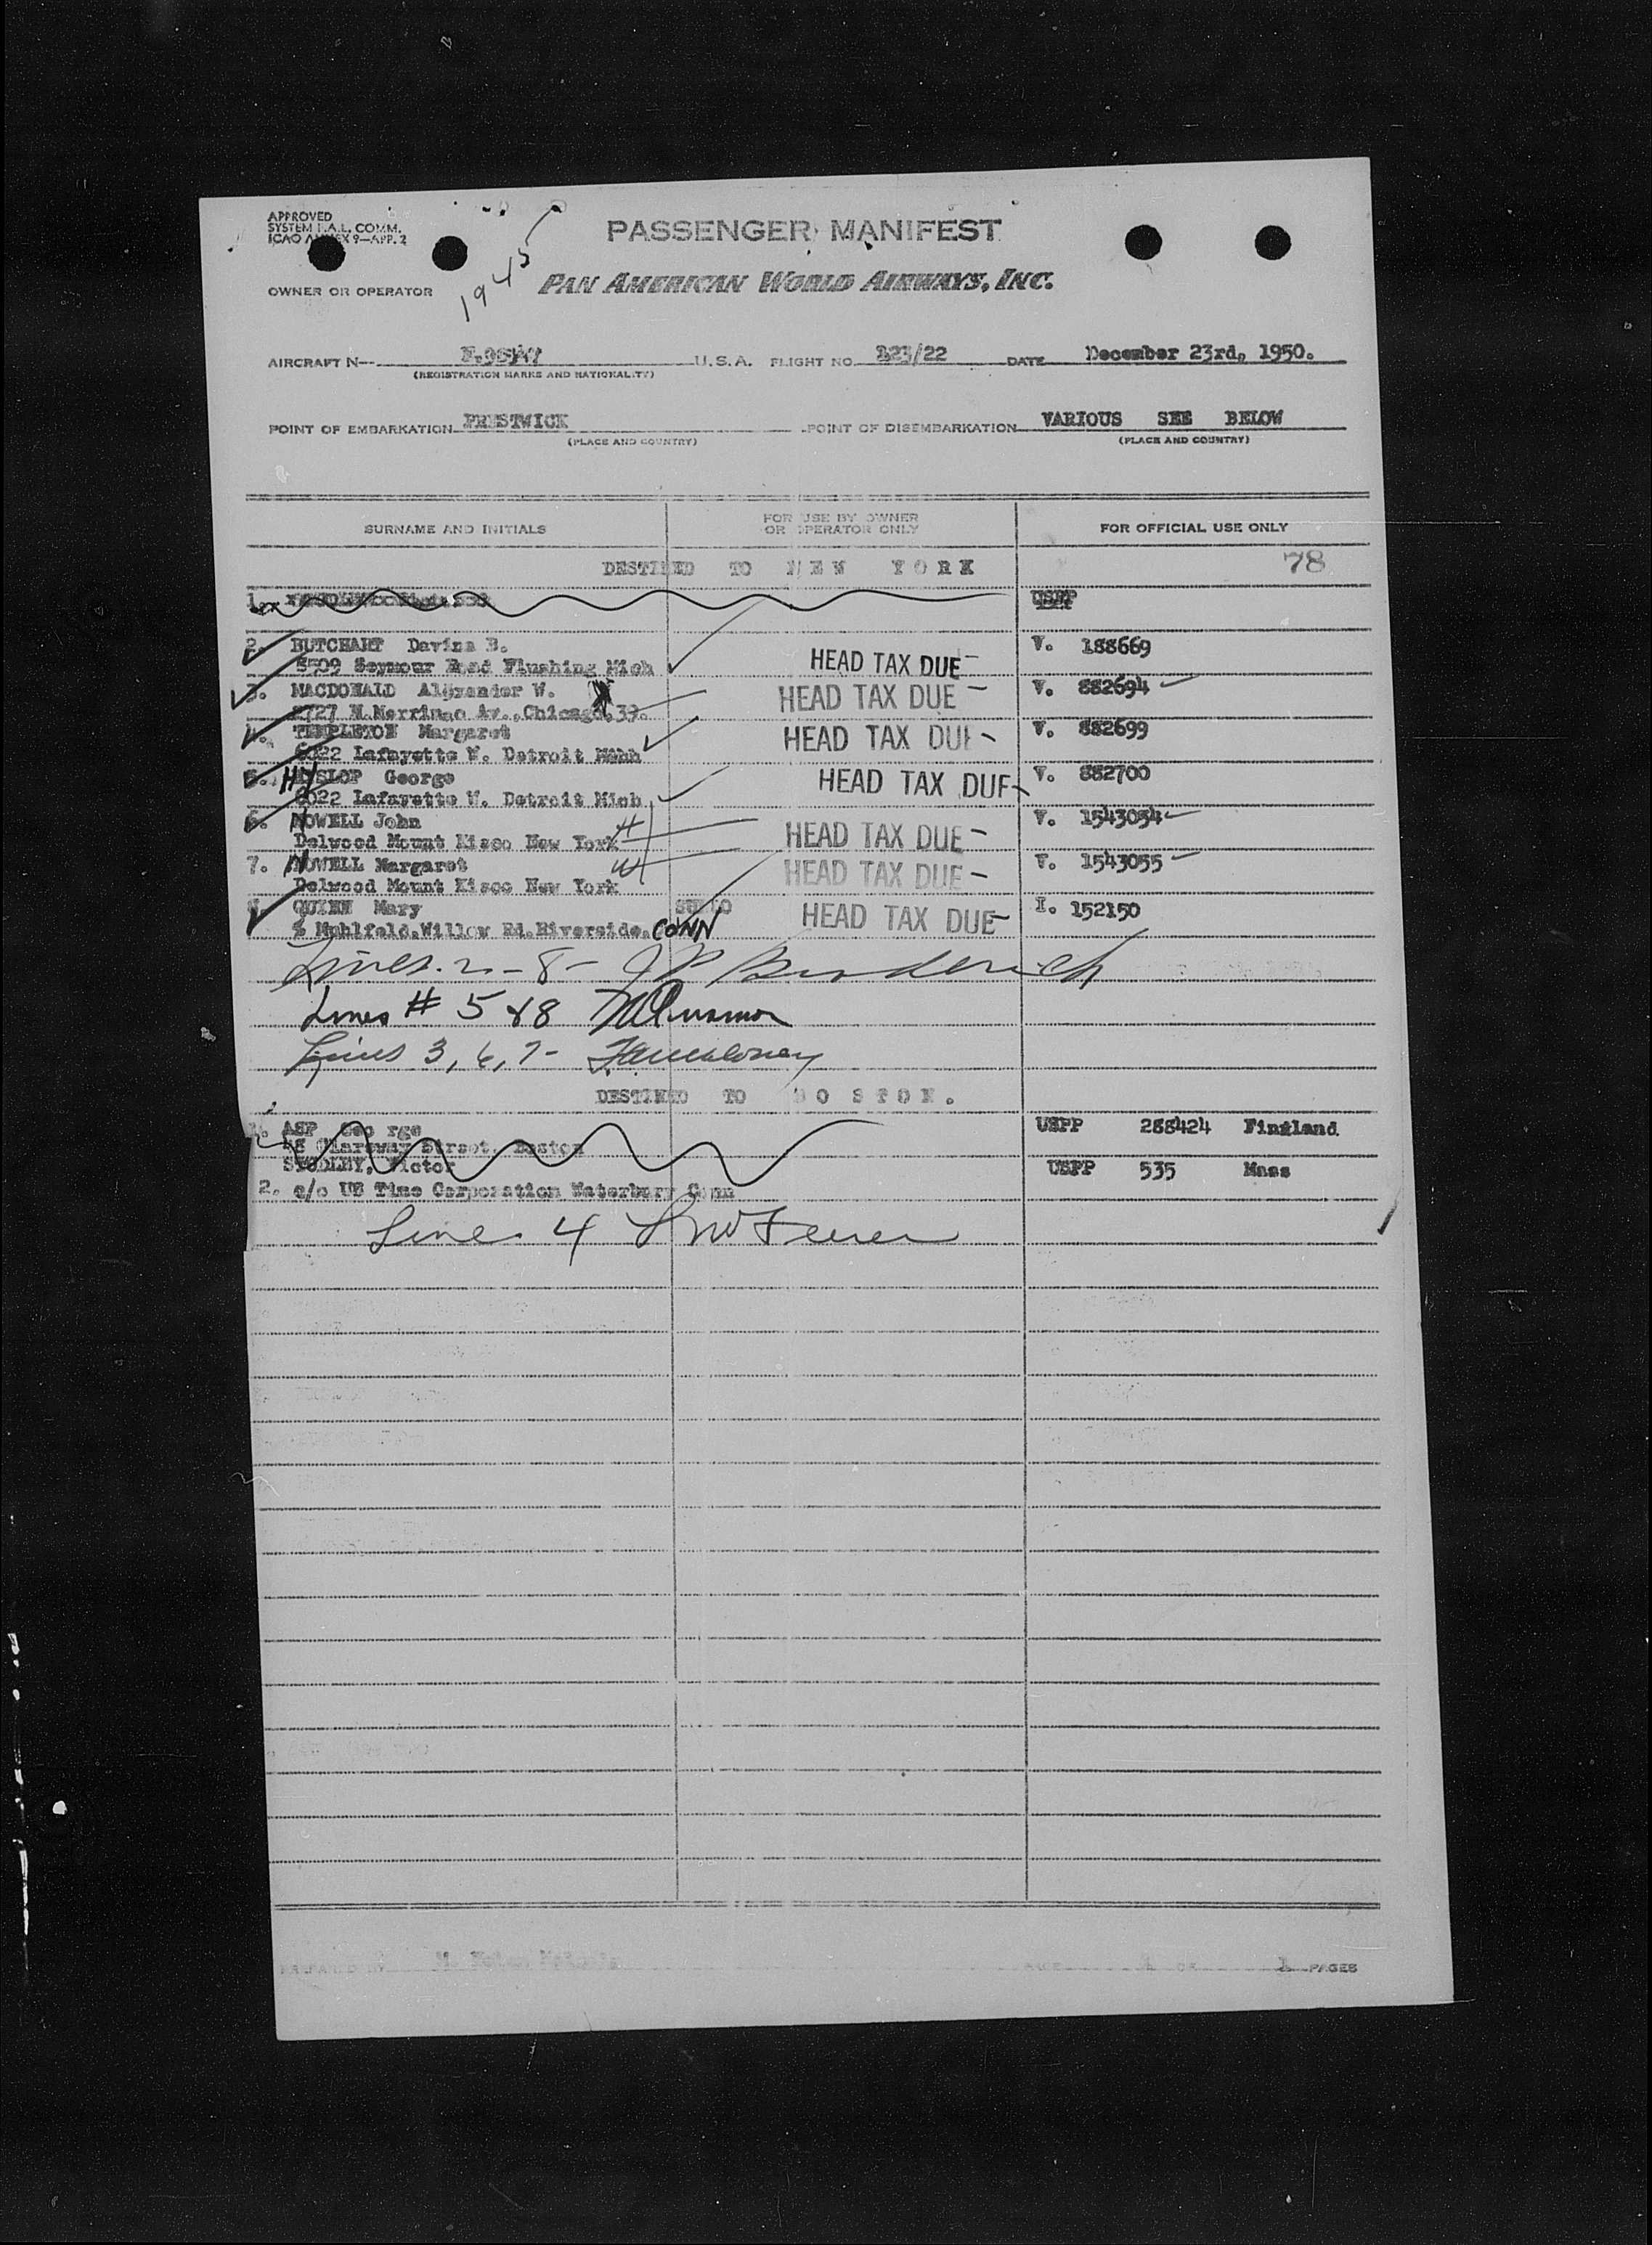 APPROVED
SYSTEM F.A.L. COMM.
ICAO ANNEX 9—APP. 2
1945
PASSENGER MANIFEST
OWNER OR OPERATOR PAN AMERICAN WORLD AIRWAYS, INC.
AIRCRAFT N-- U.S.A. FLIGHT NO. /22 DATE December 23rd, 1950.
(REGISTRATION MARKS AND NATIONALITY)
POINT OF EMBARKATION PRESTWICK POINT OF DISEMBARKATION VARIOUS SEE BELOW
(PLACE AND COUNTRY) (PLACE AND COUNTRY)
SURNAME AND INITIALS FOR USE BY OWNER OR OPERATOR ONLY FOR OFFICIAL USE ONLY
DESTINED TO N E W Y O R K 78
1. USPP
2. BUTCHART Davina B. V. 188669
Seymour Road Flushing Mich HEAD TAX DUE-
3. MACDONALD Alexander W. HEAD TAX DUE - V. 882694
2727 N. Av., Chicago, 39.
4. TEMPLETON Margaret HEAD TAX DUE - V. 882699
6022 Lafayette W. Detroit
5. HYSLOP George HEAD TAX DUE- V. 882700
6022 Lafayette W. Detroit Mich
6. NOWELL John V. 1543054
Delwood Mount Kisco New York H HEAD TAX DUE -
7. NOWELL Margaret W V. 1543055
Delwood Mount Kisco New York HEAD TAX DUE -
QUINN Mary HEAD TAX DUE- I. 152150
% Muhlfeld, Willow Rd. Riverside, CONN
Lines. 2 - 8 -
Lines # 5 & 8
Lines 3, 6, 7 -
DESTINED TO B O S T O N.
1. ASP Geo rge USPP 288424
Street, Boston
STUDLEY, Victor USPP 535 Mass
2. c/o US Time Corporation Waterbury Conn
Line 4
PAGES